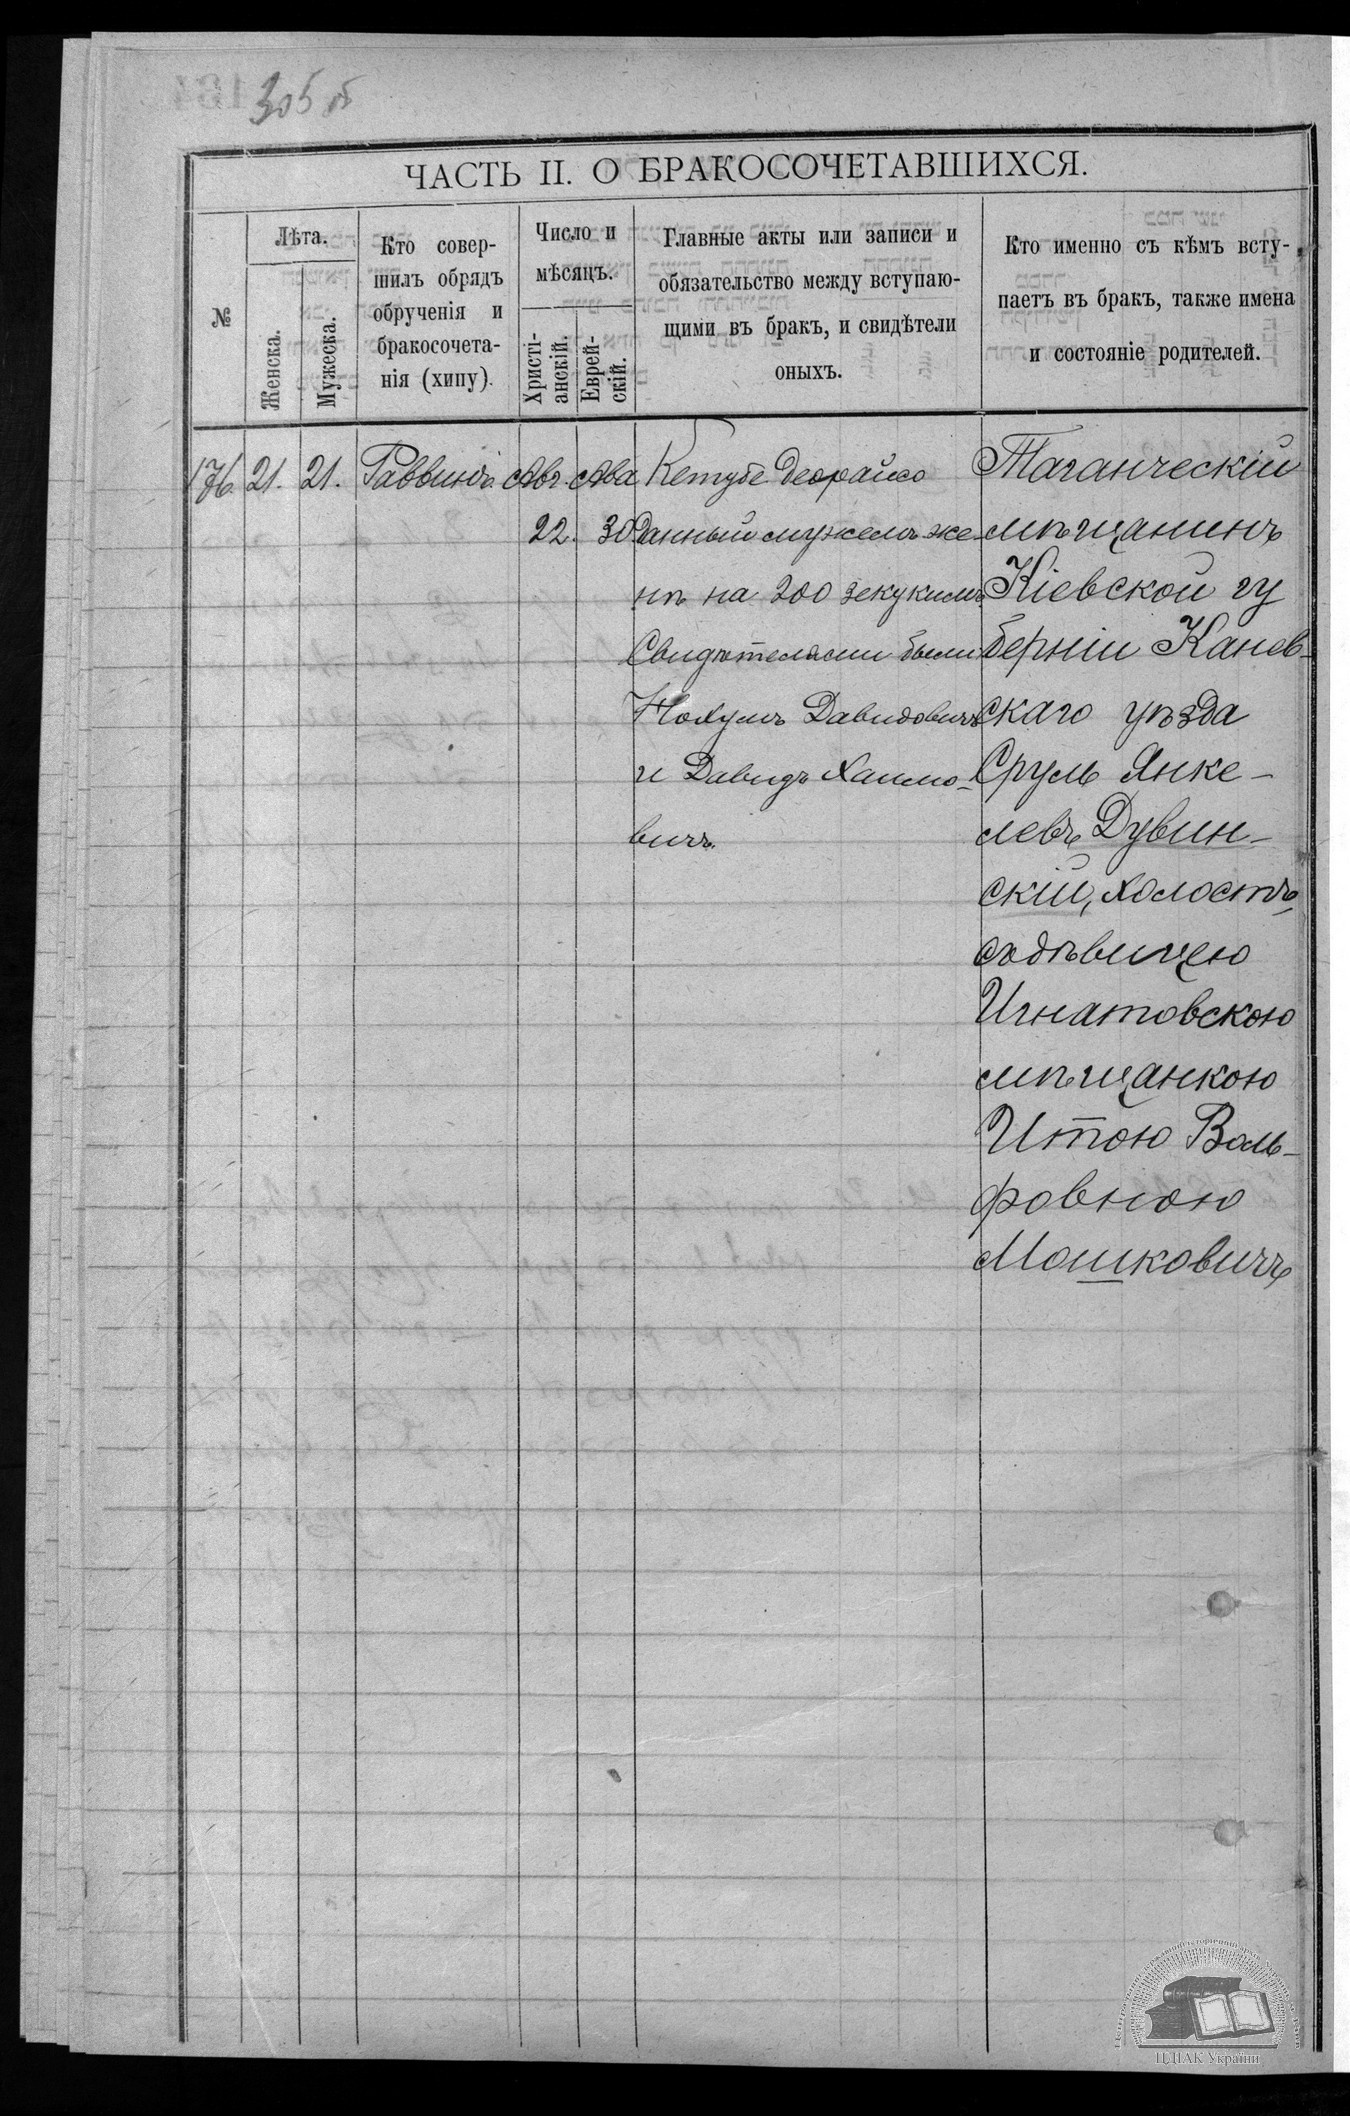 305 об
ЧАСТЬ II. О БРАКОСОЧЕТАВШИХСЯ.
№
Лѣта.
Женска.
Мужеска.
Кто совер-
шилъ обрядъ
обрученія и
бракосочета-
нія (хипу).
Число и
мѣсяцъ.
Христі-
анскій.
Еврей-
скій.
Главные акты или записи и
обязательство между вступаю-
щими въ бракъ, и свидѣтели
оныхъ.
Кто именно съ кѣмъ всту-
паетъ въ бракъ, также имена
и состояніе родителей.
176.
21.
21.
Раввинъ.
Авг.
22.
Ава
30
Кетубе деорайсо
данный мужемъ же-
нѣ на 200 зекукимъ
Свидѣтелями были
Нохумъ Давидовичъ
и Давидъ Хаимо-
вичъ.
Таганческій
мѣщанинъ
Кіевской гу
берніи Канев-
скаго уѣзда
Сруль Янке-
левъ Дувин-
скій, холостъ,
съ дѣвицею
Игнатовскою
мѣщанкою
Итою Воль-
фовною
Мошковичъ
ЦДІАК України